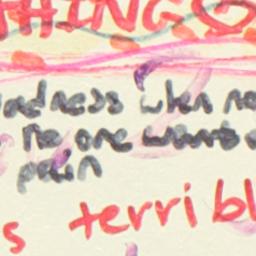 THING
adness when no
no one wants
pain
s terribl